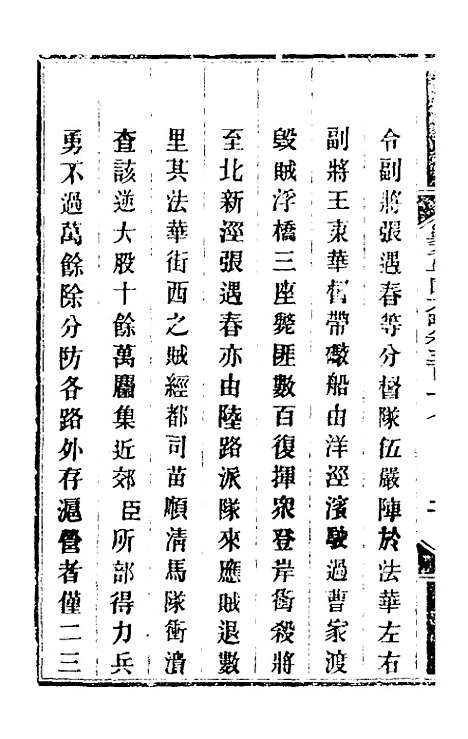 令副將張遇春等分督隊伍嚴陣於法華左右
副將王東華舊帶礮船由洋涇濱駛過曹家渡
毀賊浮橋三座斃匪數百復揮衆登岸衝殺將
至北新涇張遇春亦由陸路派隊來應賊退數
里其法華街西之賊經都司苗順清馬隊衝潰
查該逆大股十餘萬麕集近郊臣所部得力兵
勇不過萬餘除分防各路外存滬營者僅二三